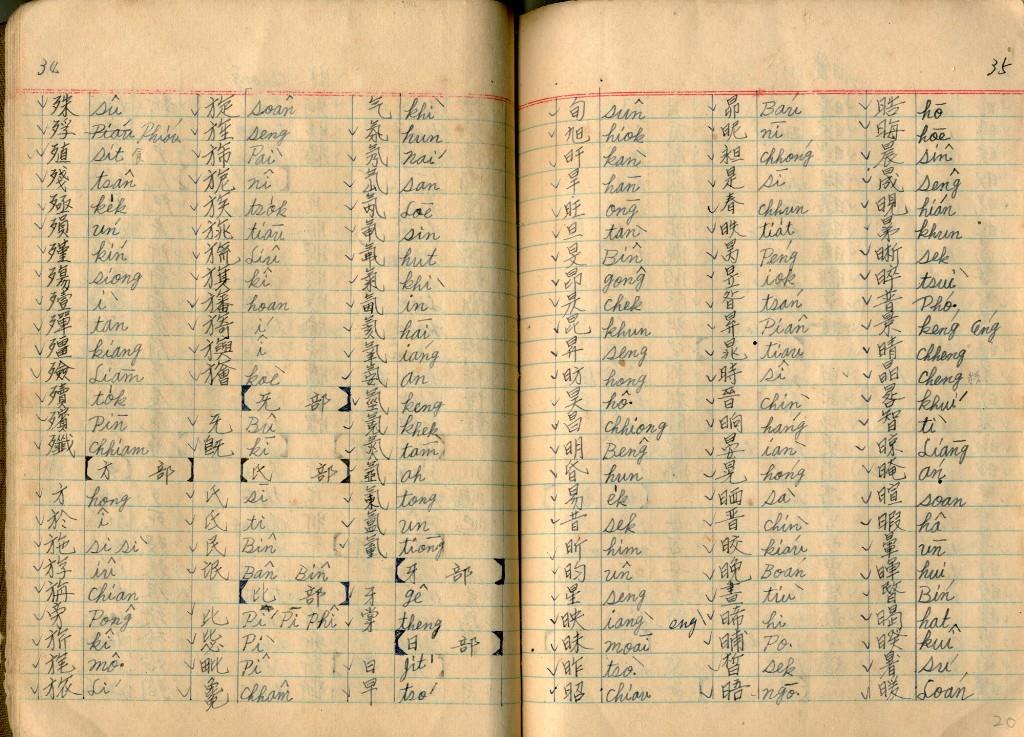 34
殊 sû
殍 Piáu Phiáu
殖 sit
殘 tsân
殛 kek
殞 ún
殣 kín
殤 siong
殪 ì
殫 tan
殭 kiang
殮 Liām
殰 to̍k
殯 Pìn
殲 chhiam
方 部
方 hong
於 î
施 si sì
斿 iû
旃 Chian
旁 Pông
旂 kî
旄 mô͘
旅 Lí
旋 soân
旌 seng
旆 Pài
旎 nî
族 tso̍k
旐 tiāu
旒 Liû
旗 kî
旛 hoan
旖 í
旟 î
旝 koè
旡 部
旡 Bû
既 kì
氏 部
氏 sī
氐 ti
民 Bîn
氓 Bân Bîn
比 部
比 Pí Pī Phî
毖 Pì
毗 Pî
毚 chhâm
气 khì
氛 hun
氖 nái
氙 san
氘 Loē
氫 sin
氟 hut
氣 khì
氤 in
氦 hāi
氧 iáng
氨 an
氫 keng
氪 khek
氮 tām
氬 ah
氭 tong
氳 un
牙 部
牙 gê
牚 theng
日 部
日 ji̍t
早 tsó
35
旬 sûn
旭 hiok
旰 kàn
旱 hān
旺 ōng
旦 tàn
旻 Bîn
昂 gông
昃 chek
昆 khun
昇 seng
昉 hóng
昊 hō͘
昌 chhiong
明 Bêng
昏 hun
易 e̍k
昔 sek
昕 him
昀 ûn
星 seng
映 iàng eng
昧 moāi
昨 tso̍
昭 chiau
昴 Báu
昵 nî
昶 chhóng
是 sī
春 chhun
昳 tia̍t
昺 Péng
昱 iok
昝 tsán
昪 Piân
晁 tiau
時 sî
晉 chìn
晌 háng
晏 iàn
晃 hóng
晒 sà
晋 chìn
晈 kiáu
晚 Boán
晝 tiù
晞 hi
晡 Po͘
晳 sek
晤 ngō͘
晧 hō
晦 hoē
晨 sîn
晟 sêng
晛 hián
晜 khun
晰 sek
晬 tsuì
普 Phó͘
景 kéng éng
晴 chhêng
晶 cheng
晷 khuí
智 tì
晾 Liāng
晻 án
暄 soan
暇 hâ
暈 ūn
暉 hui
暋 Bín
暍 hat
暌 kuî
暑 sú
暖 Loán
20